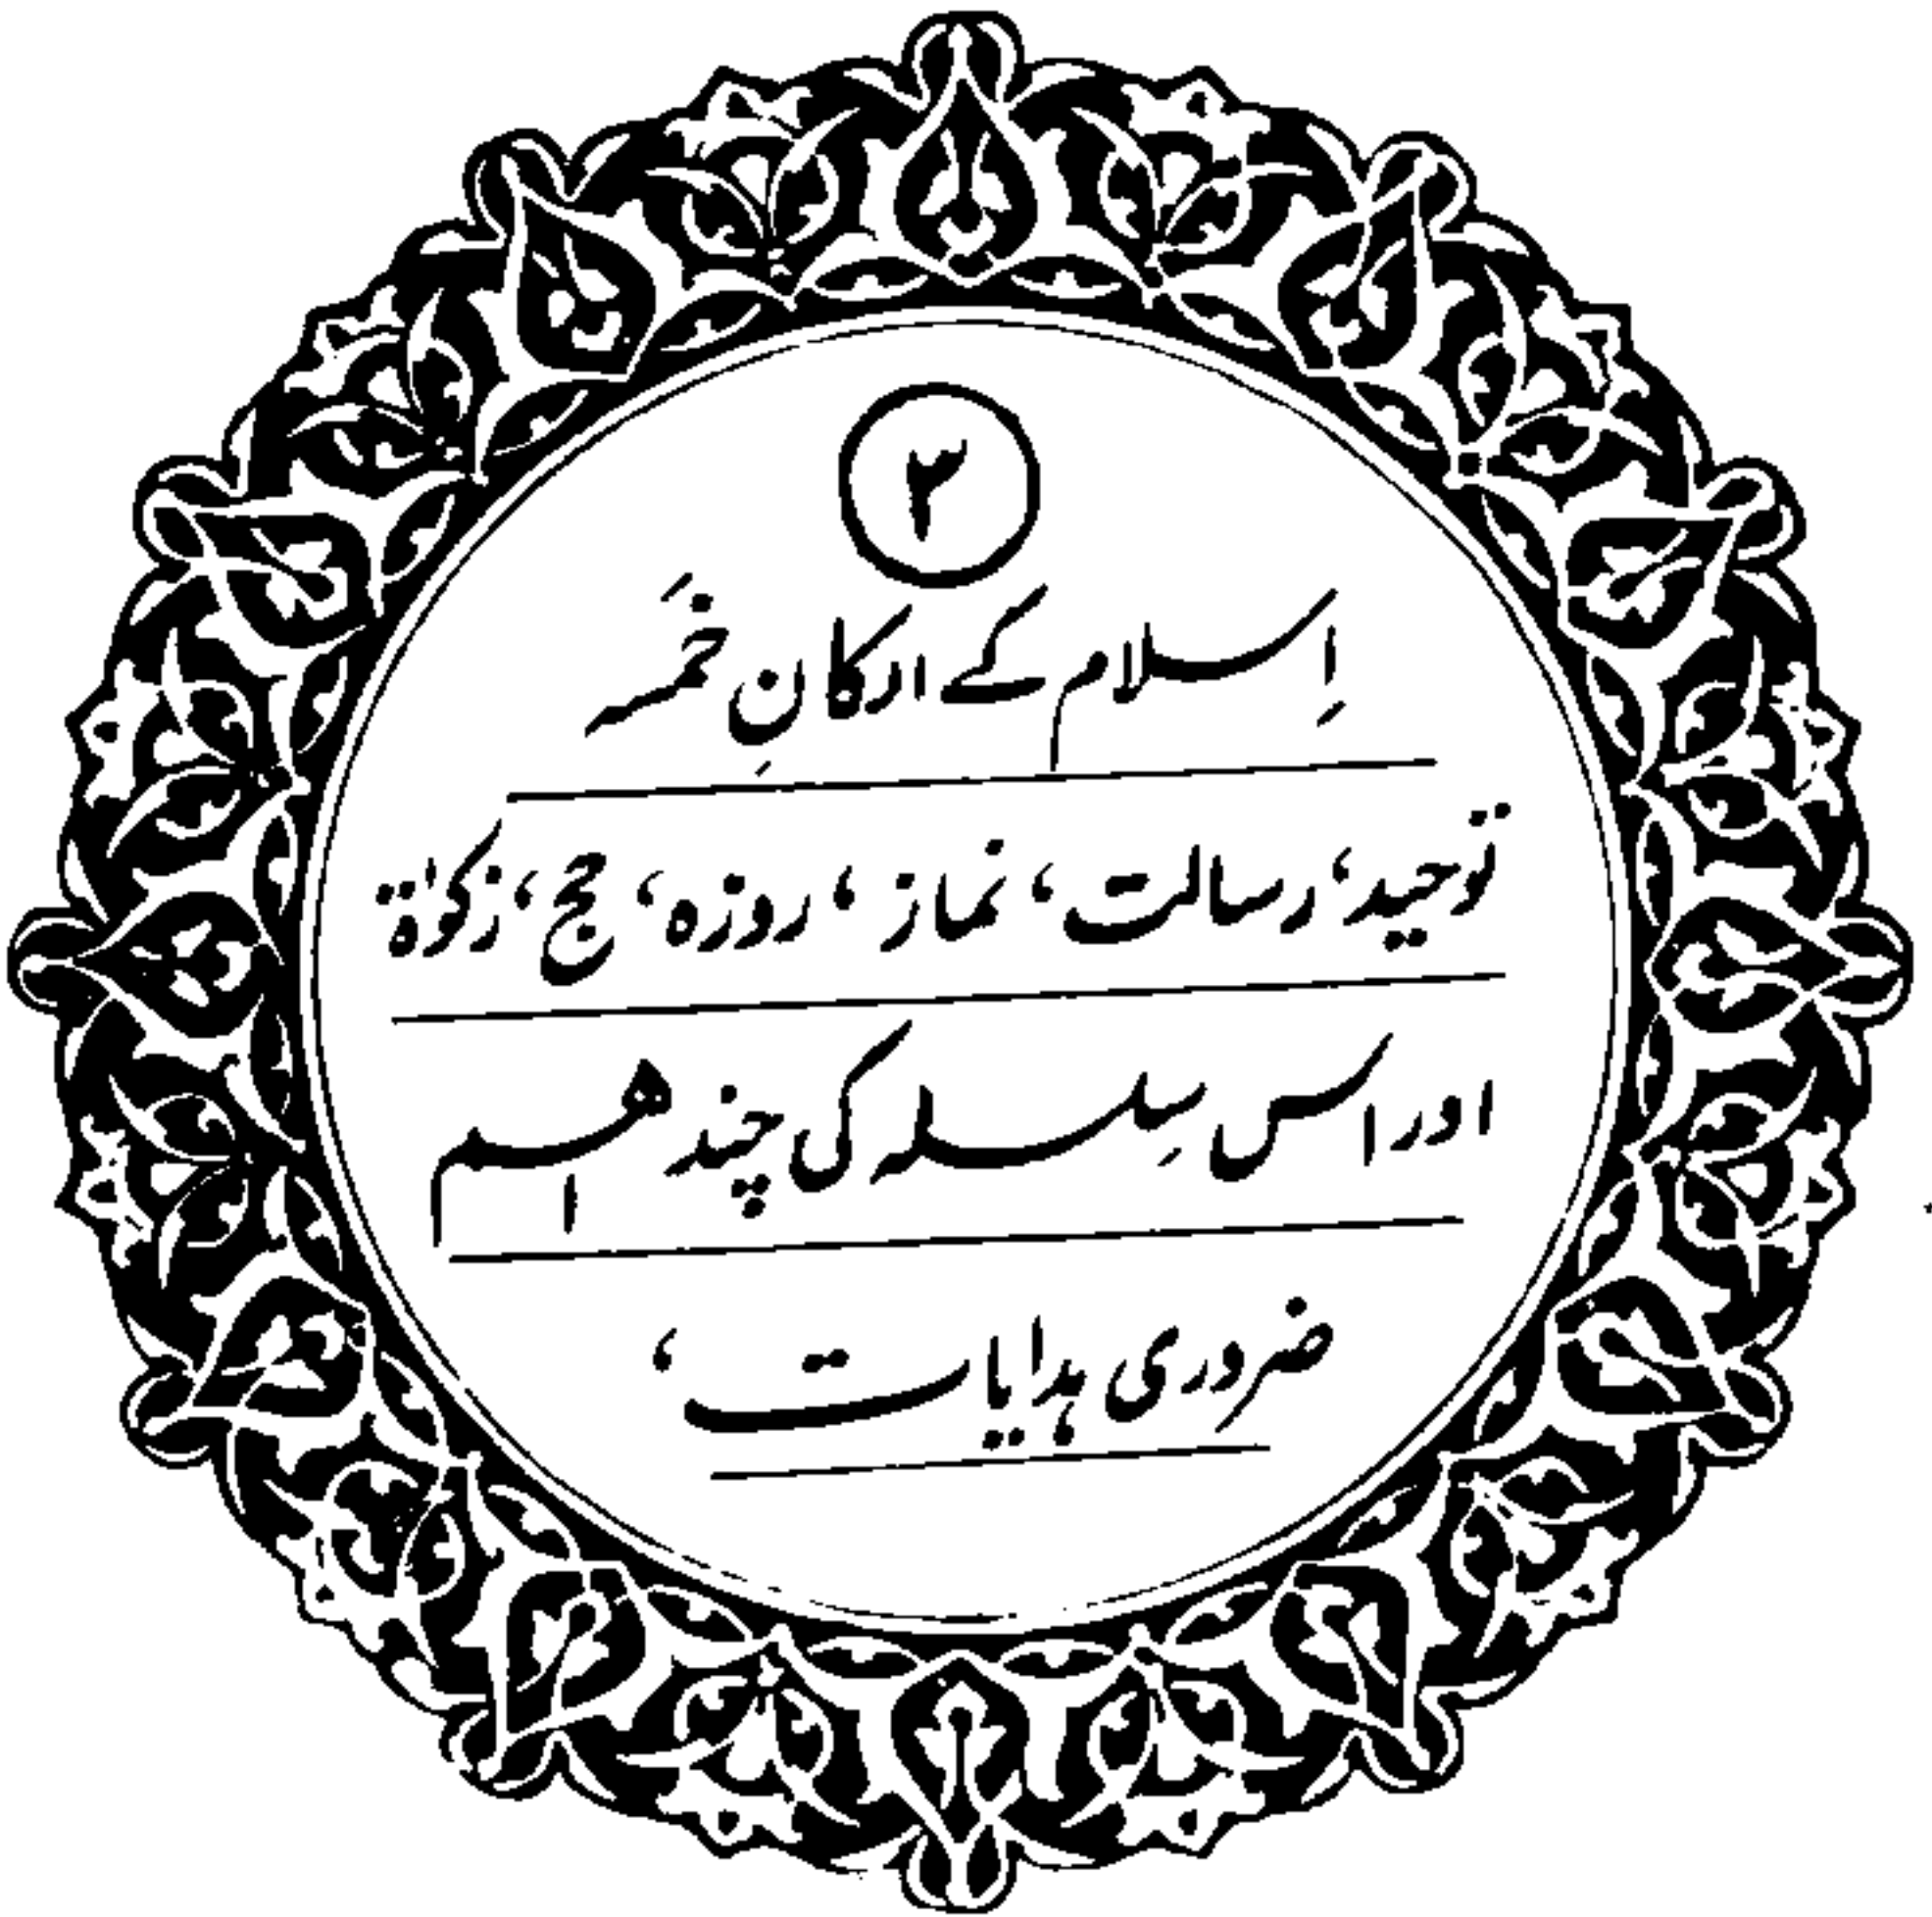 ۲
اِسلام کے ارکانِ خمسَہ
توحید، رسالت، نماز، روزہ، حج، زکوٰۃ
اور اس سِلسلہ کی چند اہم
ضروری ہدایات،